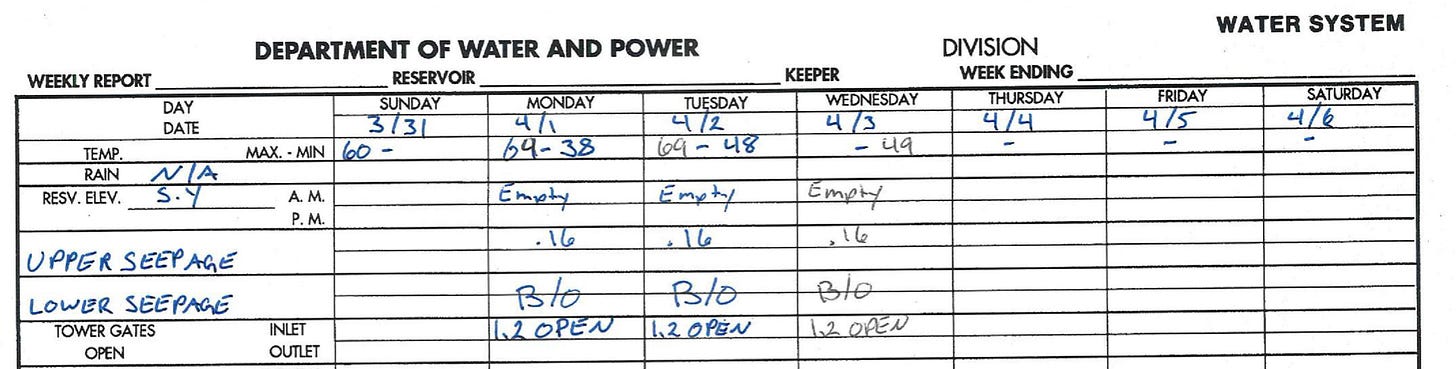 WATER SYSTEM
DEPARTMENT OF WATER AND POWER DIVISION
WEEKLY REPORT RESERVOIR KEEPER WEEK ENDING
DAY SUNDAY MONDAY TUESDAY WEDNESDAY THURSDAY FRIDAY SATURDAY
DATE 3/31 4/1 4/2 4/3 4/4 4/5 4/6
TEMP. MAX. - MIN 60 - 69 - 38 69 - 48 - 49 - - -
RAIN N/A
RESV. ELEV. S.Y A. M. Empty Empty Empty
P. M.
.16 .16 .16
UPPER SEEPAGE
LOWER SEEPAGE B/O B/O B/O
TOWER GATES INLET 1,2 OPEN 1,2 OPEN 1,2 OPEN
OPEN OUTLET